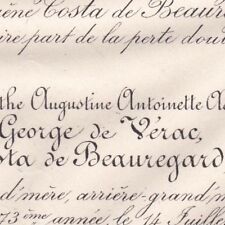 gène Costa de Beaure
ire part de la perte dou
the Augustine Antoinette A
George de Vérac,
sta de Beauregard
d'mère, arrière-grand'm
73ème année, le 14 Juille